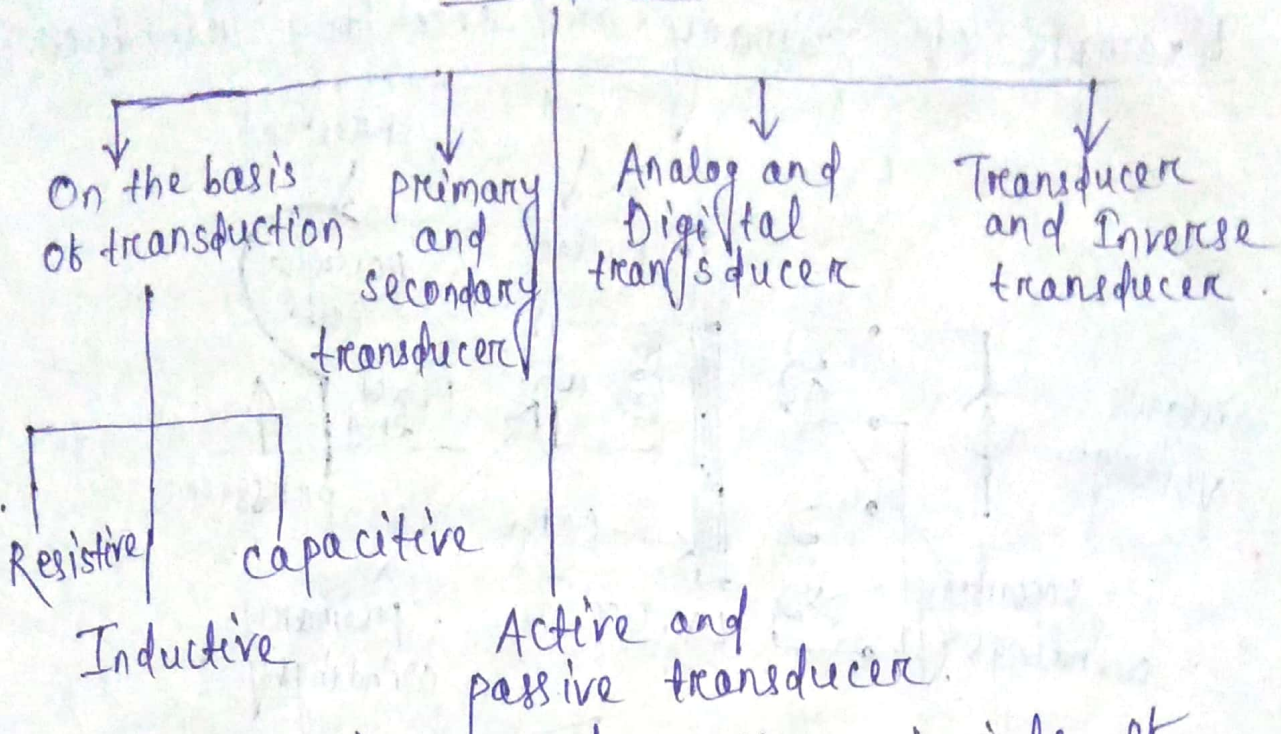 On the basis
of transduction
primary
and
secondary
transducer
Analog and
Digital
transducer
Transducer
and Inverse
transducer.
Resistive
capacitive
Inductive
Active and
passive transducer.